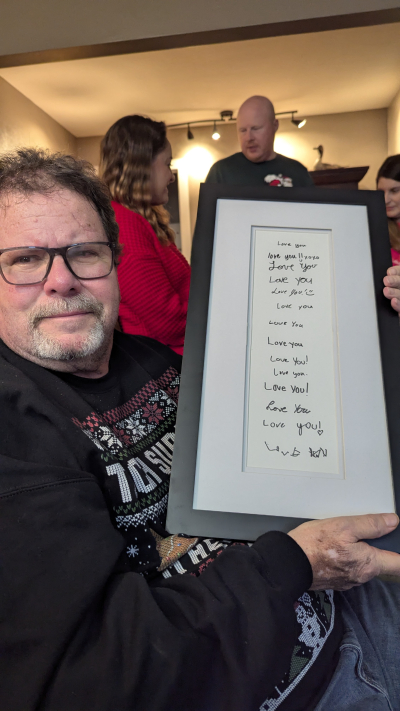 Love you
love you!! xoxo
Love You
Love you
Love You
Love you
Love You
Love you
Love You!
Love you
Love You!
Love You
Love you!